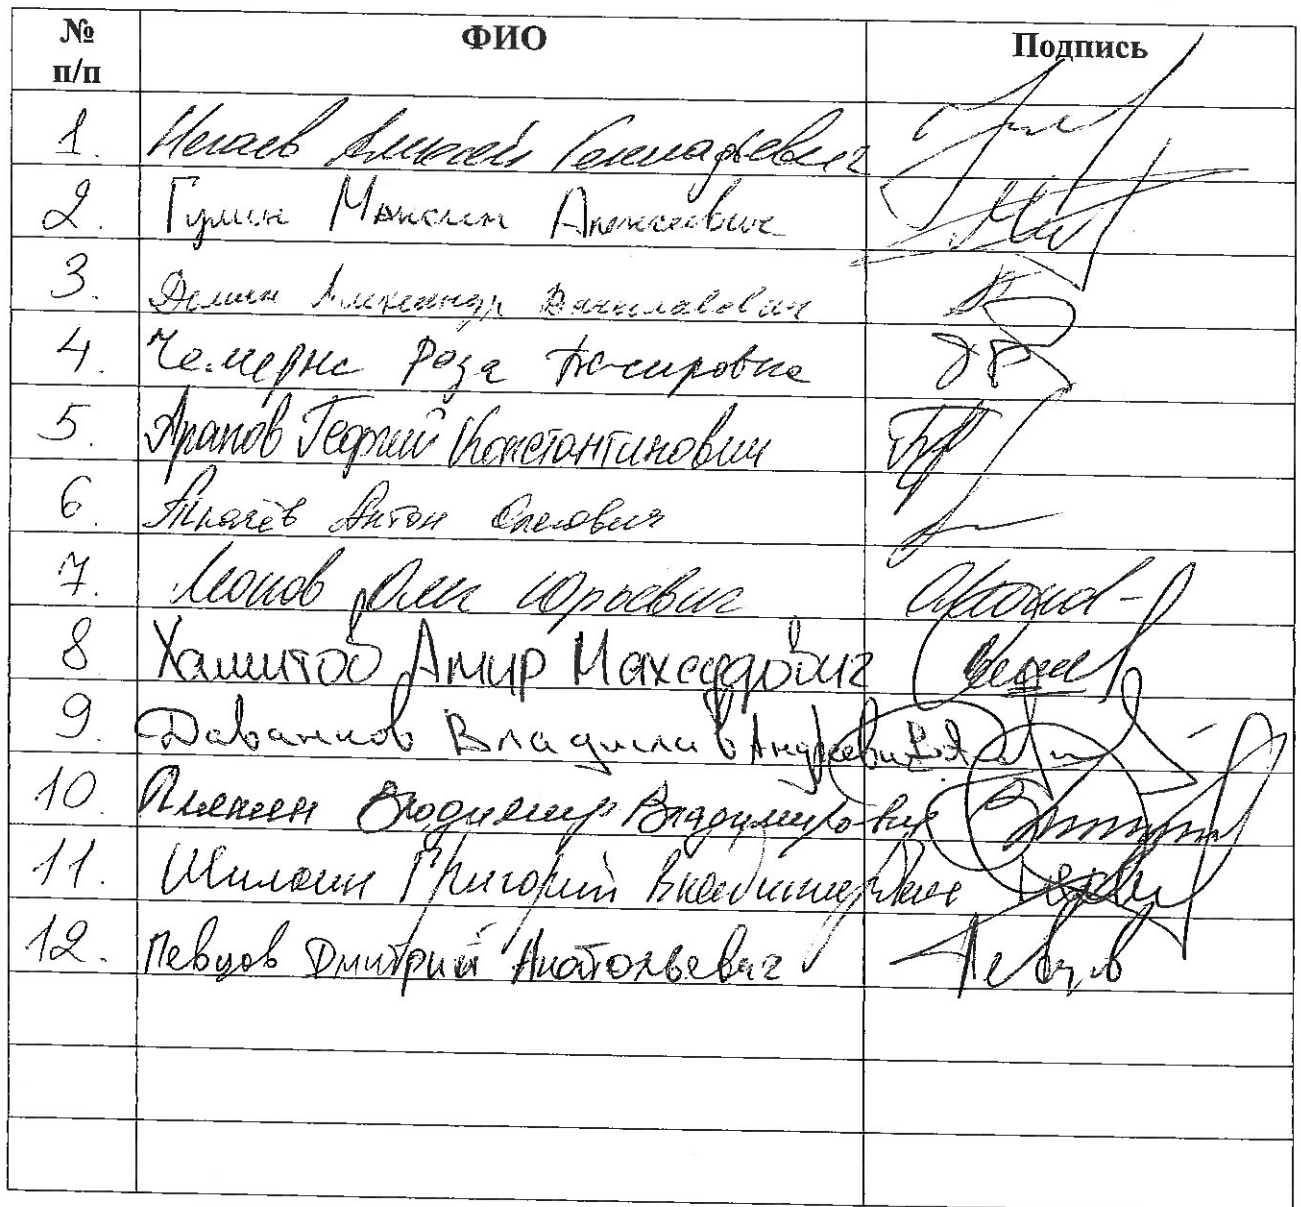 № п/п ФИО Подпись
1. Нечаев Алексей Геннадьевич
2. Гулин Максим Алексеевич
3. Демин Александр Вячеславович
4. Чемерис Роза
5. Арапов Георгий Константинович
6. Ткачёв Антон Олегович
7. Леонов Олег Юрьевич
8 Хамитов Амир Махсудович
9. Даванков Владислав Андреевич
10. Плякин Владимир Владимирович
11. Шилкин Григорий Владимирович
12. Певцов Дмитрий Анатольевич Певцов